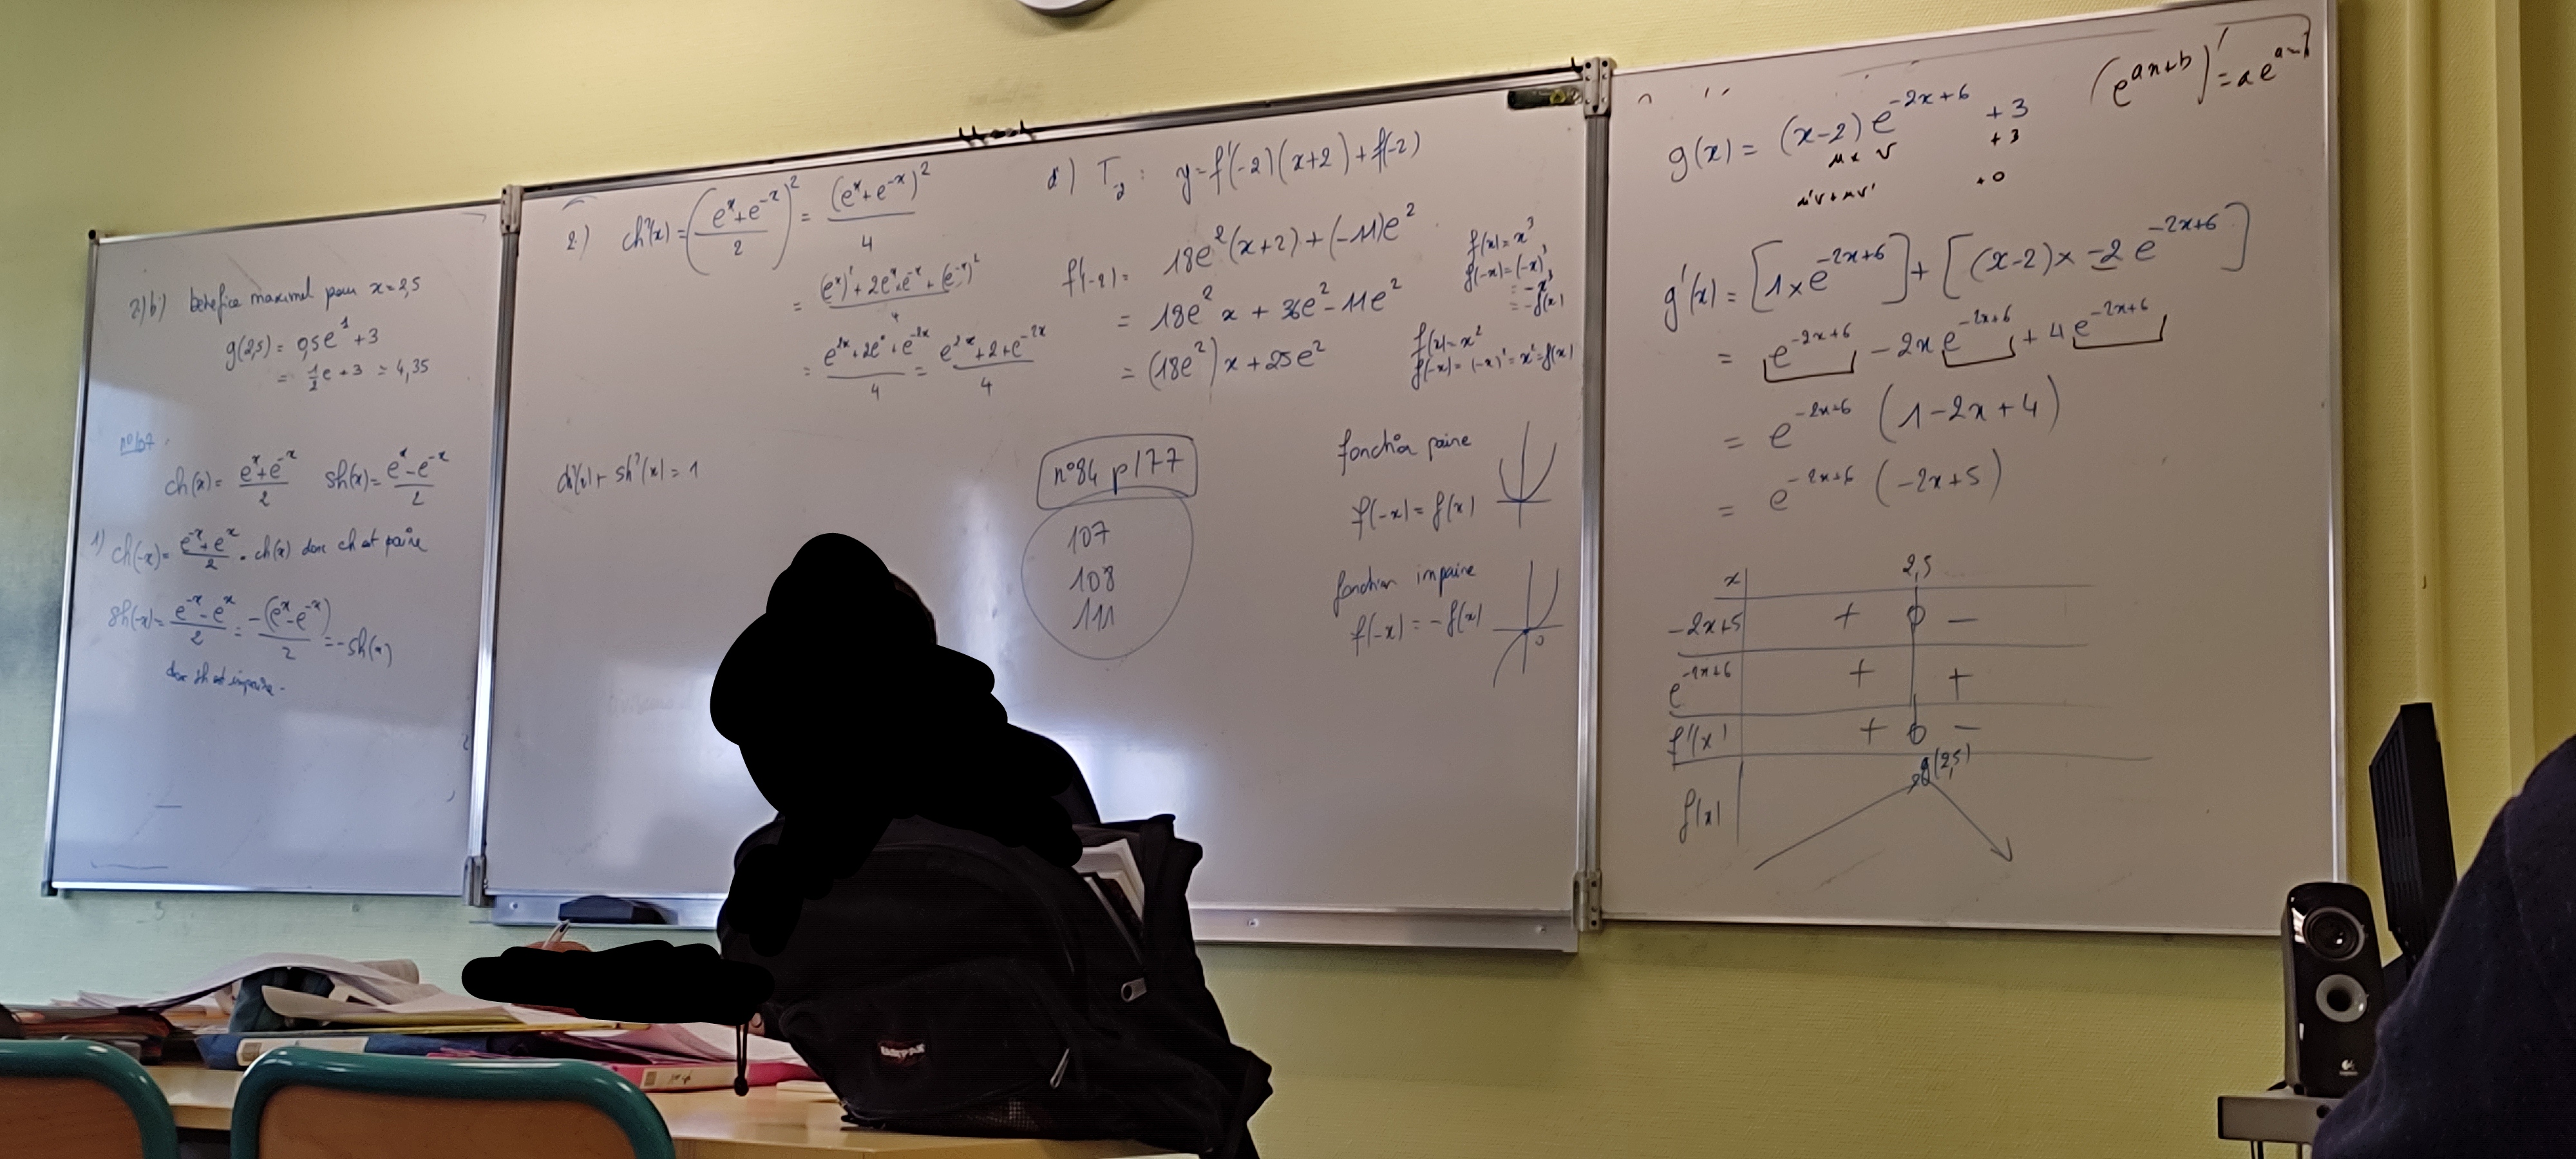 2)b) bénéfice maximal pour x=2,5
g(2,5) = 0,5e¹ + 3
= 1/2 e + 3 = 4,35
n°107
ch(x) = (e^x + e^-x)/2 sh(x) = (e^x - e^-x)/2
1) ch(-x) = (e^-x + e^x)/2 = ch(x) donc ch est paire
sh(-x) = (e^-x - e^x)/2 = -(e^x - e^-x)/2 = -sh(x)
donc sh est impaire.
2) ch²(x) = ((e^x + e^-x)/2)² = (e^x + e^-x)²/4
= ((e^x)² + 2e^x × e^-x + (e^-x)²)/4
= (e^2x + 2e^0 + e^-2x)/4 = (e^2x + 2 + e^-2x)/4
ch²(x) - sh²(x) = 1
d) T_-2 : y = f'(-2)(x+2) + f(-2)
f'(-2) = 18e²(x+2) + (-11)e²
= 18e² x + 36e² - 11e²
= (18e²)x + 25e²
n°84 p177
107
108
111
f(x) = x³
f(-x) = (-x)³
= -x³
= -f(x)
f(x) = x²
f(-x) = (-x)² = x² = f(x)
fonction paire
f(-x) = f(x)
fonction impaire
f(-x) = -f(x)
0
(e^(ax+b))' = a e^
g(x) = (x-2) e^(-2x+6) + 3
u × v + 3
u'v + uv' + 0
g'(x) = [1 × e^(-2x+6)] + [(x-2) × -2 e^(-2x+6)]
= e^(-2x+6) - 2x e^(-2x+6) + 4 e^(-2x+6)
= e^(-2x+6) (1 - 2x + 4)
= e^(-2x+6) (-2x + 5)
x 2,5
-2x+5 + 0 -
e^(-2x+6) + +
f'(x) + 0 -
g(2,5)
f(x)